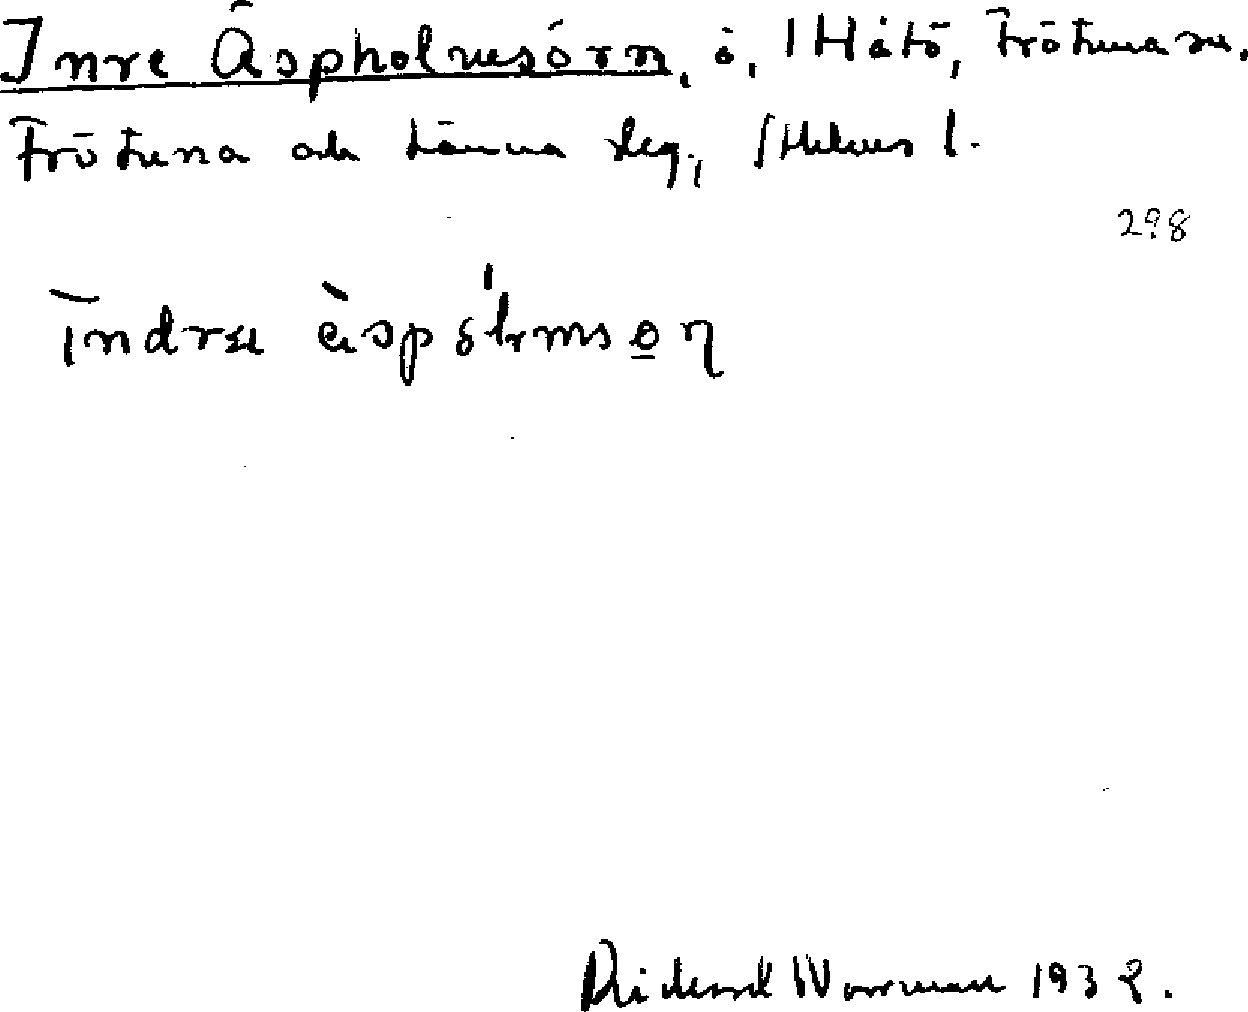 Inre Aspholmsörn, ö, i Håtö, Frötuna sn,
Frötuna och Länna skg., Sthlms l.
298
indrɛ àspólmso̲n
Rickard Norrman 1932.